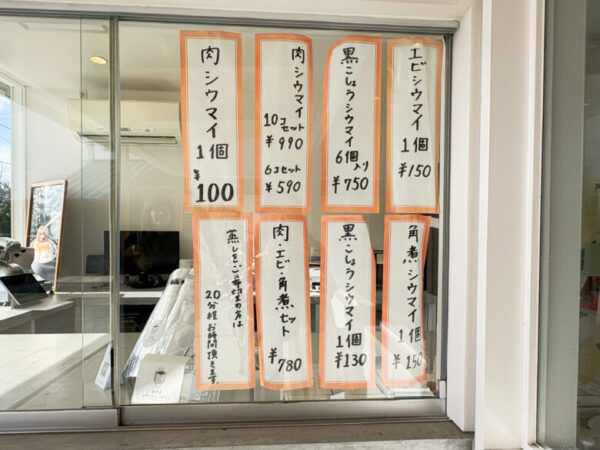 エビシウマイ
1個
¥150
黒こしょうシウマイ
6個入り
¥750
肉シウマイ
10コセット
¥990
6コセット
¥590
肉シウマイ
1個
¥100
角煮シウマイ
1個
¥150
黒こしょうシウマイ
1個
¥130
肉・エビ・角煮セット
¥780
蒸しをご希望の方は
20分程お時間頂きます。